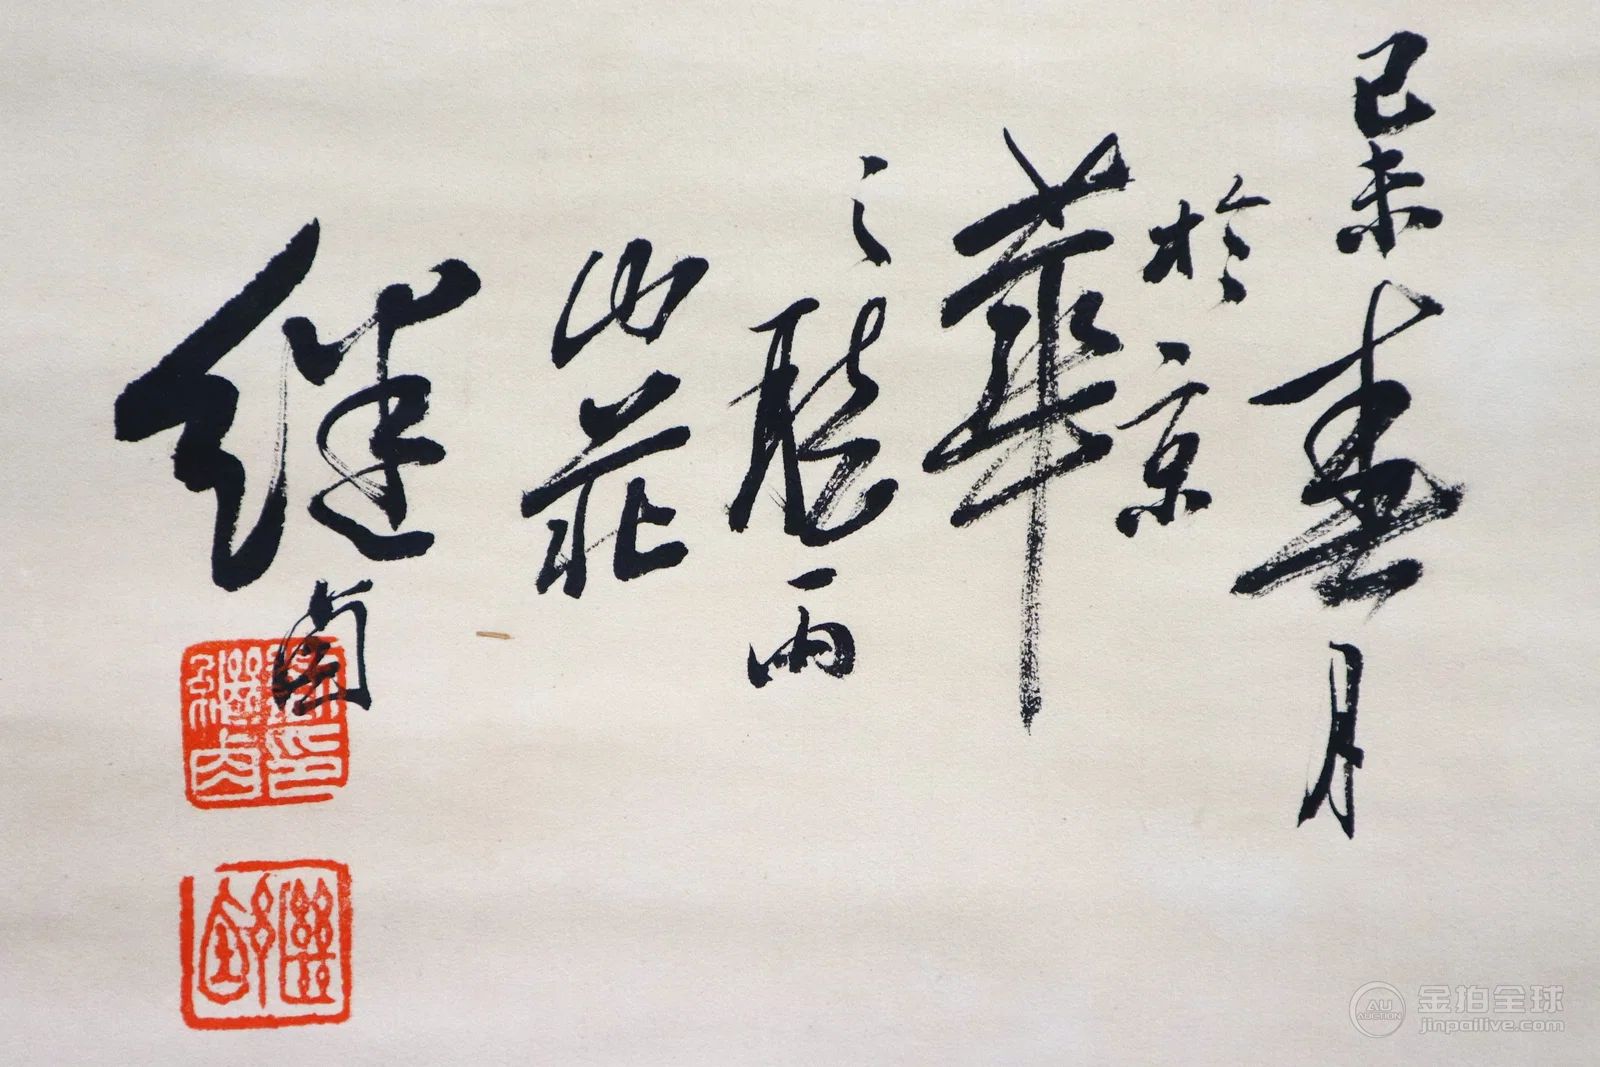 己未春月
於京
華
之聽雨
山莊
继卣
劉繼卣印
繼卣
AU
AUCTION
金拍全球
jinpailive.com